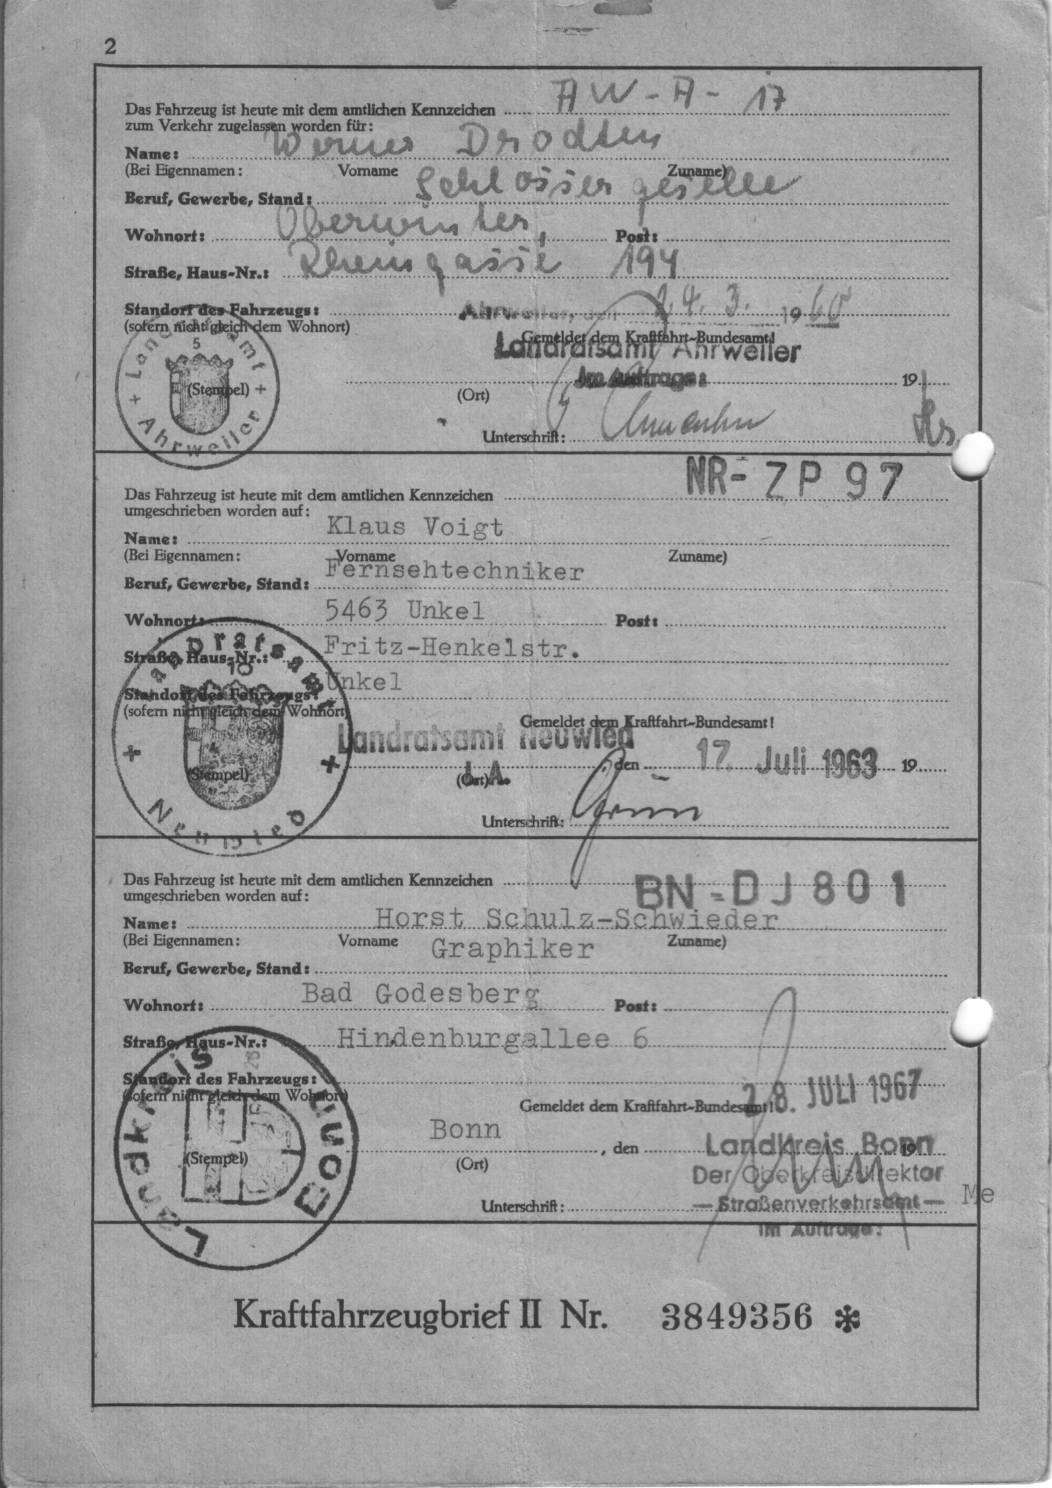 2
Das Fahrzeug ist heute mit dem amtlichen Kennzeichen AW-A-17
zum Verkehr zugelassen worden für:
Name: Werner Drodten
(Bei Eigennamen: Vorname Zuname)
Beruf, Gewerbe, Stand: Schlossergeselle
Wohnort: Oberwinter, Post:
Straße, Haus-Nr.: Rheingasse 194
Standort des Fahrzeugs: Ahrweiler, den 14. 3. 1960
(sofern nicht gleich dem Wohnort) Gemeldet dem Kraftfahrt-Bundesamt!
Landratsamt Ahrweiler
Im Auftrage:
Landratsamt 5 Ahrweiler
(Stempel)
(Ort) 19
Unterschrift:
NR-ZP 97
Das Fahrzeug ist heute mit dem amtlichen Kennzeichen
umgeschrieben worden auf:
Name: Klaus Voigt
(Bei Eigennamen: Vorname Zuname)
Beruf, Gewerbe, Stand: Fernsehtechniker
Wohnort: 5463 Unkel Post:
Straße, Haus-Nr.: Fritz-Henkelstr.
Standort des Fahrzeugs: Unkel
(sofern nicht gleich dem Wohnort) Gemeldet dem Kraftfahrt-Bundesamt!
Landratsamt Neuwied
Landratsamt 10 Neuwied
(Stempel) (Ort) I.A. den 17. Juli 1963 19
Unterschrift:
Das Fahrzeug ist heute mit dem amtlichen Kennzeichen BN-DJ 801
umgeschrieben worden auf:
Name: Horst Schulz-Schwieder
(Bei Eigennamen: Vorname Zuname)
Beruf, Gewerbe, Stand: Graphiker
Wohnort: Bad Godesberg Post:
Straße, Haus-Nr.: Hindenburgallee 6
Standort des Fahrzeugs:
(sofern nicht gleich dem Wohnort) Gemeldet dem Kraftfahrt-Bundesamt! 28. JULI 1967
Landkreis Bonn
Bonn, den 19
(Stempel) (Ort)
Landkreis Bonn
Der Oberkreisdirektor
— Straßenverkehrsamt — Me
Unterschrift:
Im Auftrage:
Kraftfahrzeugbrief II Nr. 3849356 *